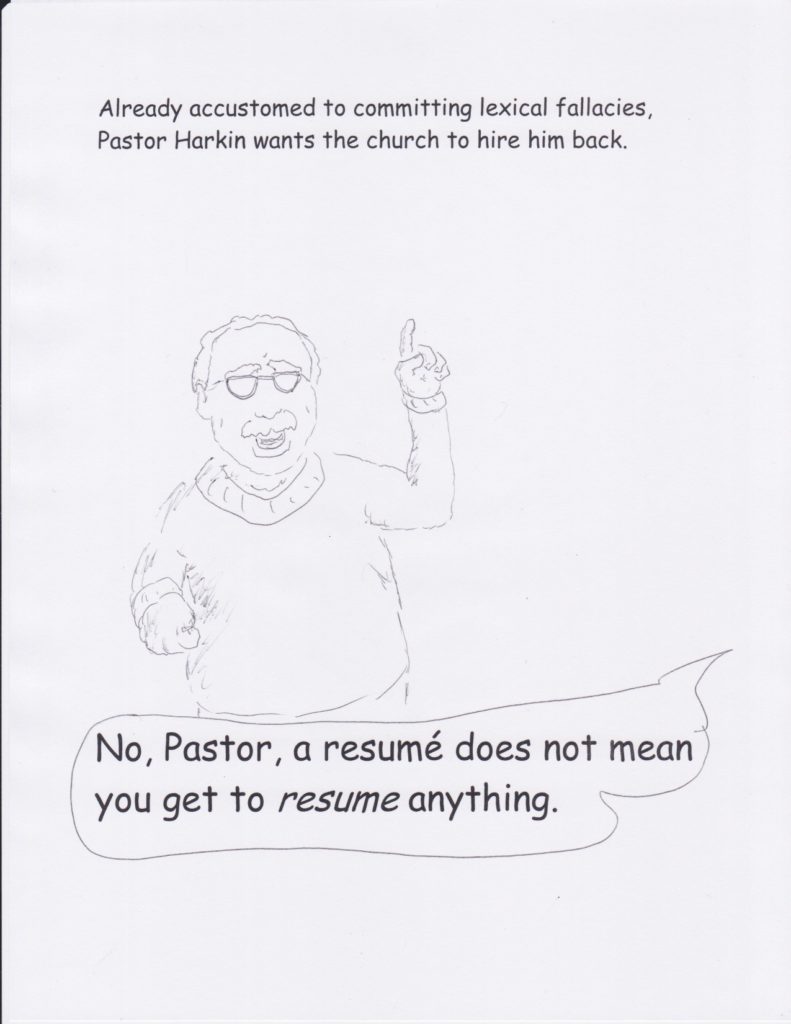 Already accustomed to committing lexical fallacies,
Pastor Harkin wants the church to hire him back.
No, Pastor, a resumé does not mean
you get to resume anything.